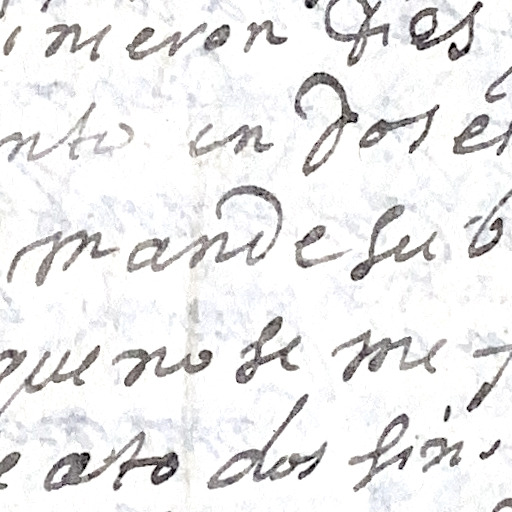 inieron Dies
nto en Dos es
mande su b
que no se me
e ato dos sin